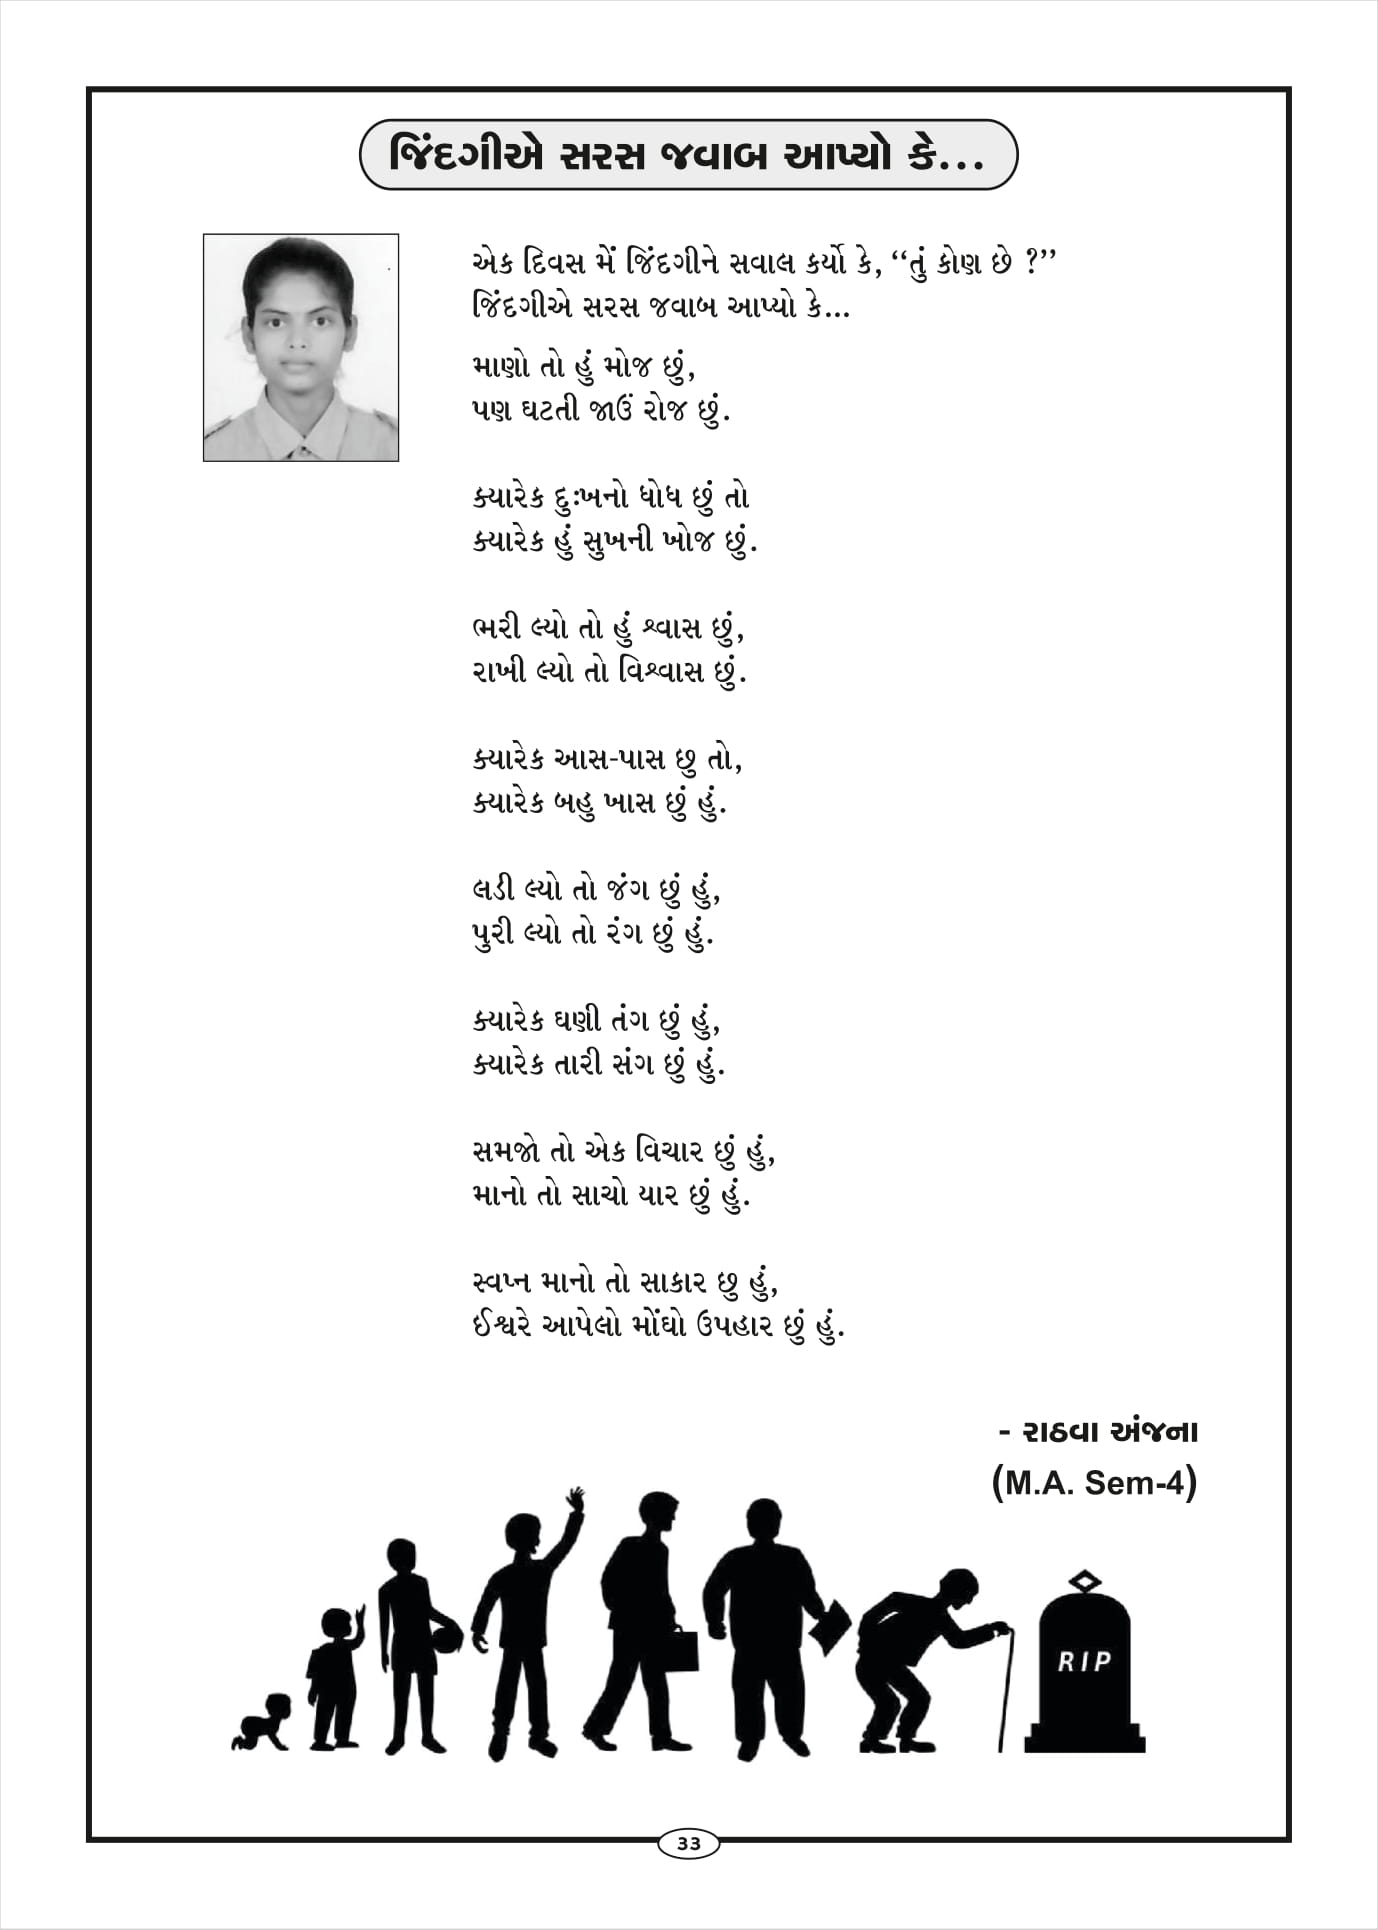 જિંદગીએ સરસ જવાબ આપ્યો કે...
એક દિવસ મેં જિંદગીને સવાલ કર્યો કે, ‘‘તું કોણ છે ?’’
જિંદગીએ સરસ જવાબ આપ્યો કે...
માણો તો હું મોજ છું,
પણ ઘટતી જાઉં રોજ છું.
ક્યારેક દુઃખનો ધોધ છું તો
ક્યારેક હું સુખની ખોજ છું.
ભરી લ્યો તો હું શ્વાસ છું,
રાખી લ્યો તો વિશ્વાસ છું.
ક્યારેક આસ-પાસ છુ તો,
ક્યારેક બહુ ખાસ છું હું.
લડી લ્યો તો જંગ છું હું,
પુરી લ્યો તો રંગ છું હું.
ક્યારેક ઘણી તંગ છું હું,
ક્યારેક તારી સંગ છું હું.
સમજો તો એક વિચાર છું હું,
માનો તો સાચો યાર છું હું.
સ્વપ્ન માનો તો સાકાર છુ હું,
ઈશ્વરે આપેલો મોંઘો ઉપહાર છું હું.
- રાઠવા અંજના
(M.A. Sem-4)
RIP
33